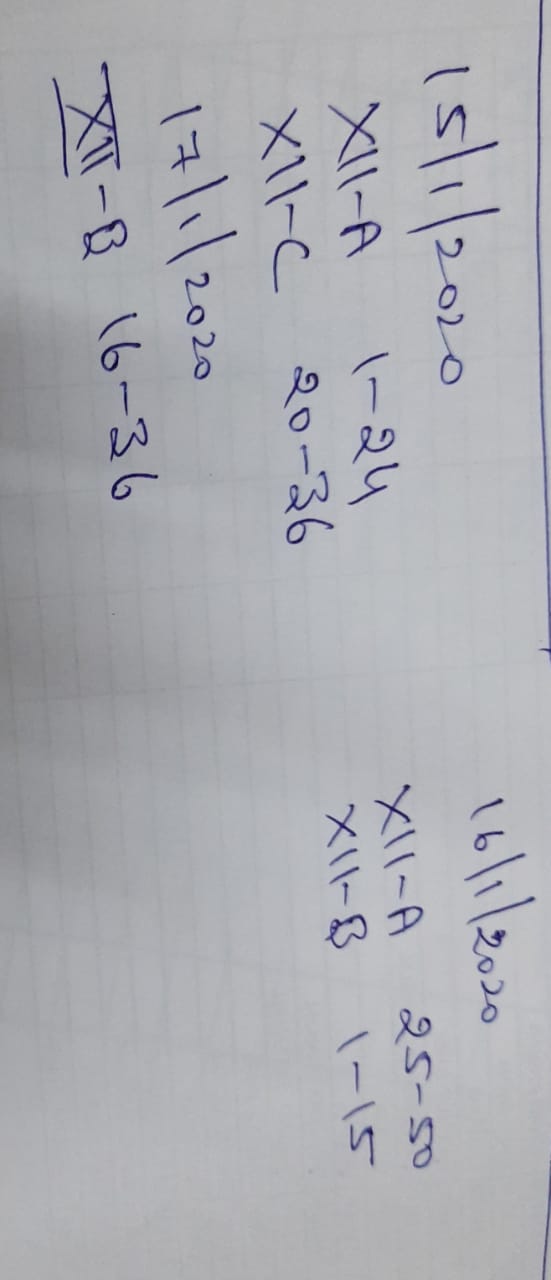 15/1/2020
XII-A 1-24
XII-C 20-36
17/1/2020
XII-B 16-36
16/1/2020
XII-A 25-50
XII-B 1-15